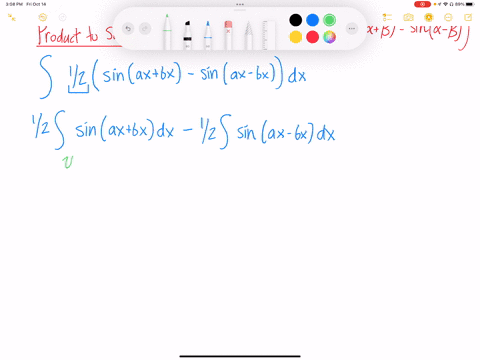 3:08 PM Fri Oct 14
89%
Product to S
x+β) - sin(α-β)]
∫ 1/2 (sin(ax+bx) - sin(ax-bx)) dx
1/2 ∫ sin(ax+bx) dx - 1/2 ∫ sin(ax-bx) dx
u